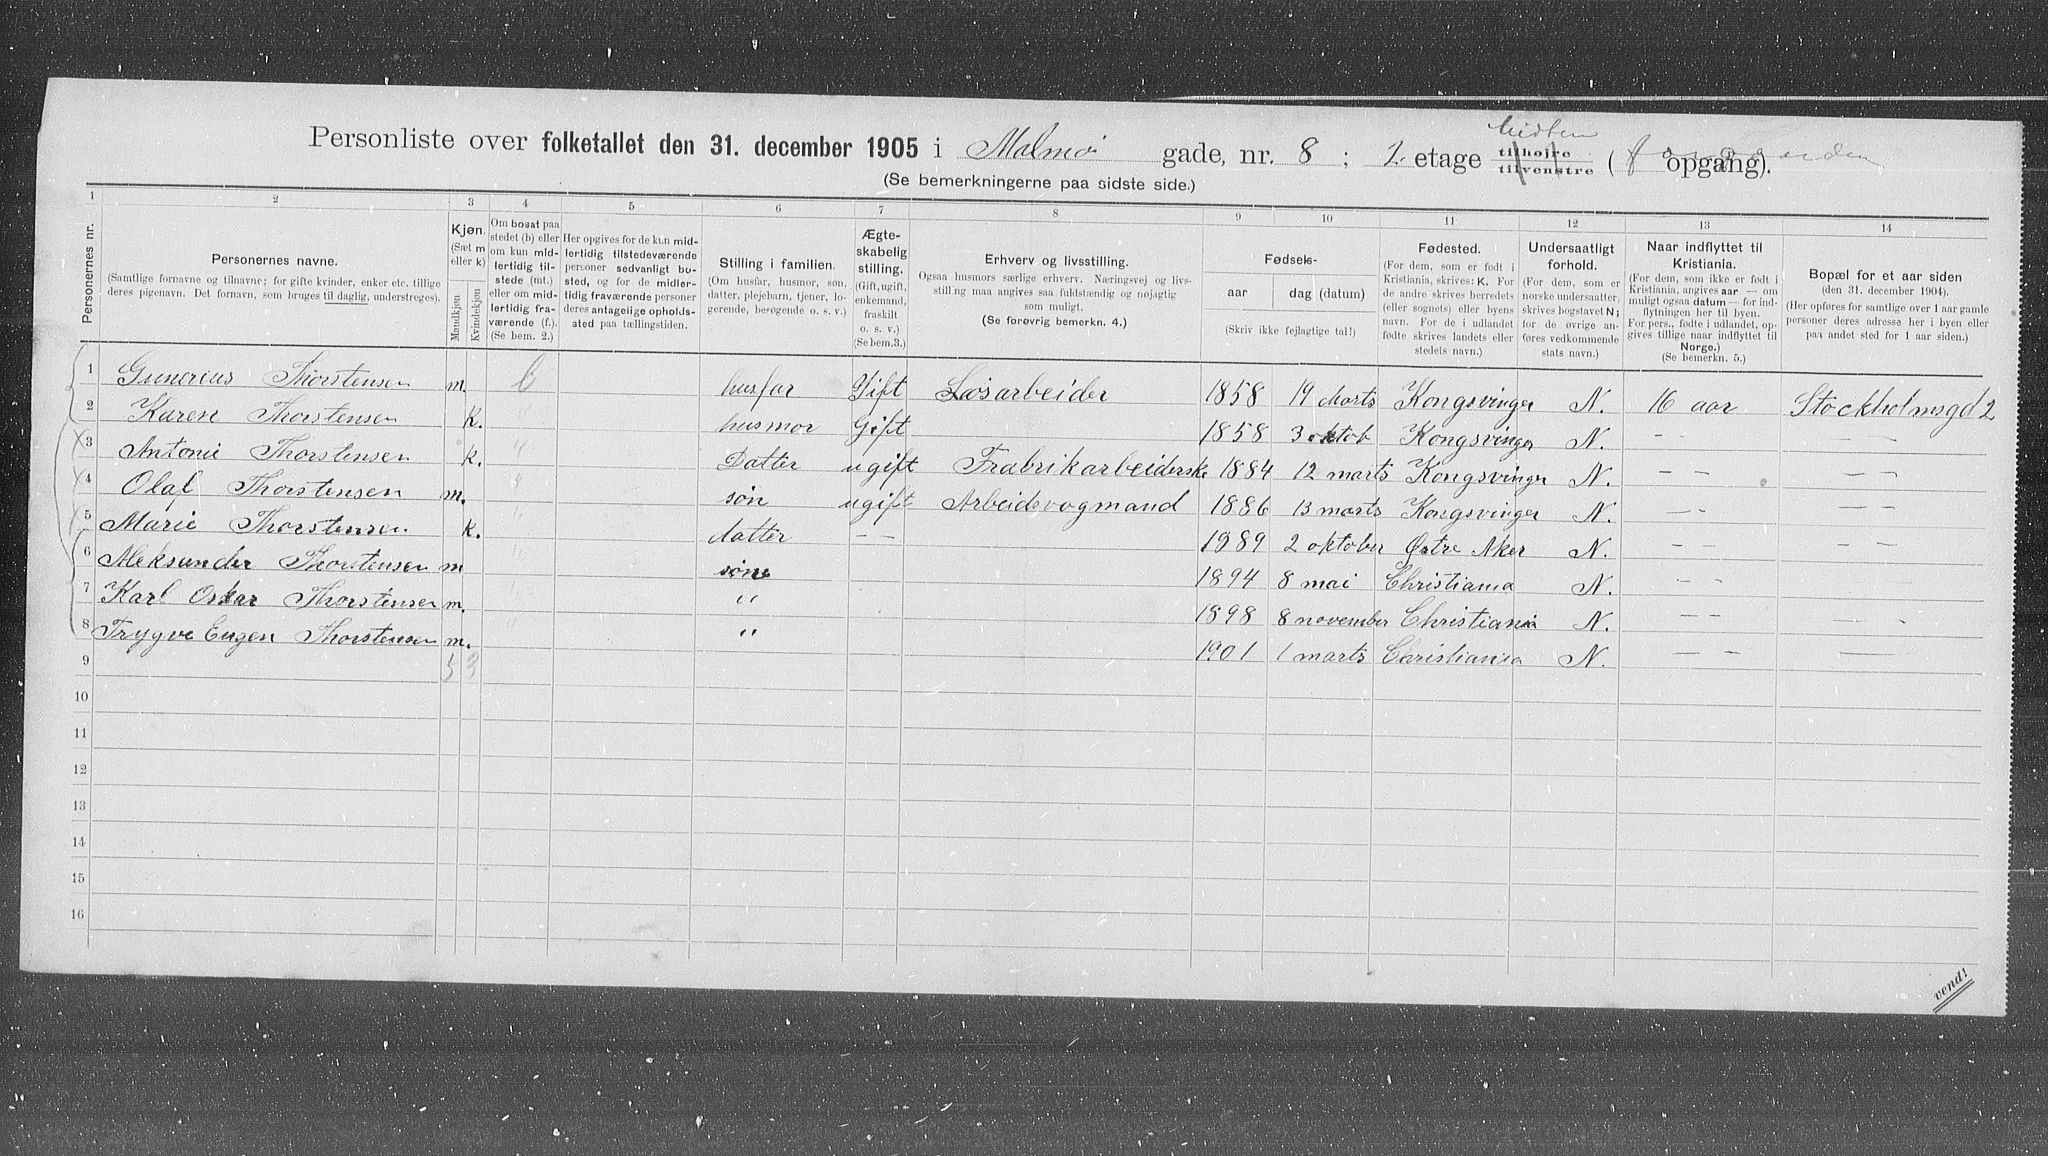 Personliste over folketallet den 31. december 1905 i Malmö gade, nr. 8; 1. etage tilhøjre tilvenstre midten ( opgang).
(Se bemerkningerne paa sidste side.)
1 2 3 4 5 6 7 8 9 10 11 12 13 14
Personernes nr.
Personernes navne.
(Samtlige fornavne og tilnavne; for gifte kvinder, enker etc. tillige
deres pigenavn. Det fornavn, som bruges til daglig, understreges).
Kjøn.
(Sæt m
eller k)
Mandkjøn
Kvindekjøn
Om bosat paa
stedet (b) eller
om kun mid-
lertidig til-
stede (mt.)
eller om mid-
lertidig fra-
værende (f.).
(Se bem. 2.)
Her opgives for de kun mid-
lertidig tilstedeværende
personer sedvanligt bo-
sted, og for de midler-
tidig fraværende personer
deres antagelige opholds-
sted paa tællingstiden.
Stilling i familien.
(Om husfar, husmor, søn,
datter, plejebarn, tjener, lo-
gerende, besøgende o. s. v.)
Ægte-
skabelig
stilling.
(Gift, ugift,
enkemand,
fraskilt
o. s. v.)
(Se bem.3.)
Erhverv og livsstilling.
Ogsaa husmors særlige erhverv. Næringsvej og livs-
stilling maa angives saa fuldstændig og nøjagtig
som muligt.
(Se forøvrig bemerkn. 4.)
Fødsels-
aar dag (datum)
(Skriv ikke fejlagtige tal!)
Fødested.
(For dem, som er født i
Kristiania, skrives: K. For
de andre skrives herredets
(eller sognets) eller byens
navn. For de i udlandet
fødte skrives landets eller
stedets navn.)
Undersaatligt
forhold.
(For dem, som er
norske undersaatter,
skrives bogstavet N;
for de øvrige an-
føres vedkommende
stats navn.)
Naar indflyttet til
Kristiania.
(For dem, som ikke er født i
Kristiania, angives aar — om
muligt ogsaa datum — for ind-
flytningen her til byen.
For pers., fødte i udlandet, op-
gives tillige naar indflyttet til
Norge.)
(Se bemerkn. 5.)
Bopæl for et aar siden
(den 31. december 1904).
(Her opføres for samtlige over 1 aar gamle
personer deres adresse her i byen eller
paa andet sted for 1 aar siden.)
1 Gunerius Thorstensen m. b husfar Gift Løsarbeider 1858 19 Marts Kongsvinger N. 16 aar Stockholmsgd 2
2 Karen Thorstensen k. " husmor Gift 1858 3 oktob Kongsvinger N. — — — —
3 Antonie Thorstensen k. " Datter ugift Frabrikarbeiderske 1884 12 marts Kongsvinger N. — — — —
4 Olaf Thorstensen m. " søn ugift Arbeidsvogmand 1886 13 marts Kongsvinger N. — — — —
5 Marie Thorstensen k. " datter — — 1889 2 oktober Østre Aker N. — — — —
6 Aleksander Thorstensen m " søn 1894 8 mai Christiania N. — — — —
7 Karl Oskar Thorstensen m. " " 1898 8 november Christiania N. — — — —
8 Trygve Eugen Thorstensen m. " " 1901 1 marts Christiania N. — — —
9 5 3
10
11
12
13
14
15
16
vend!